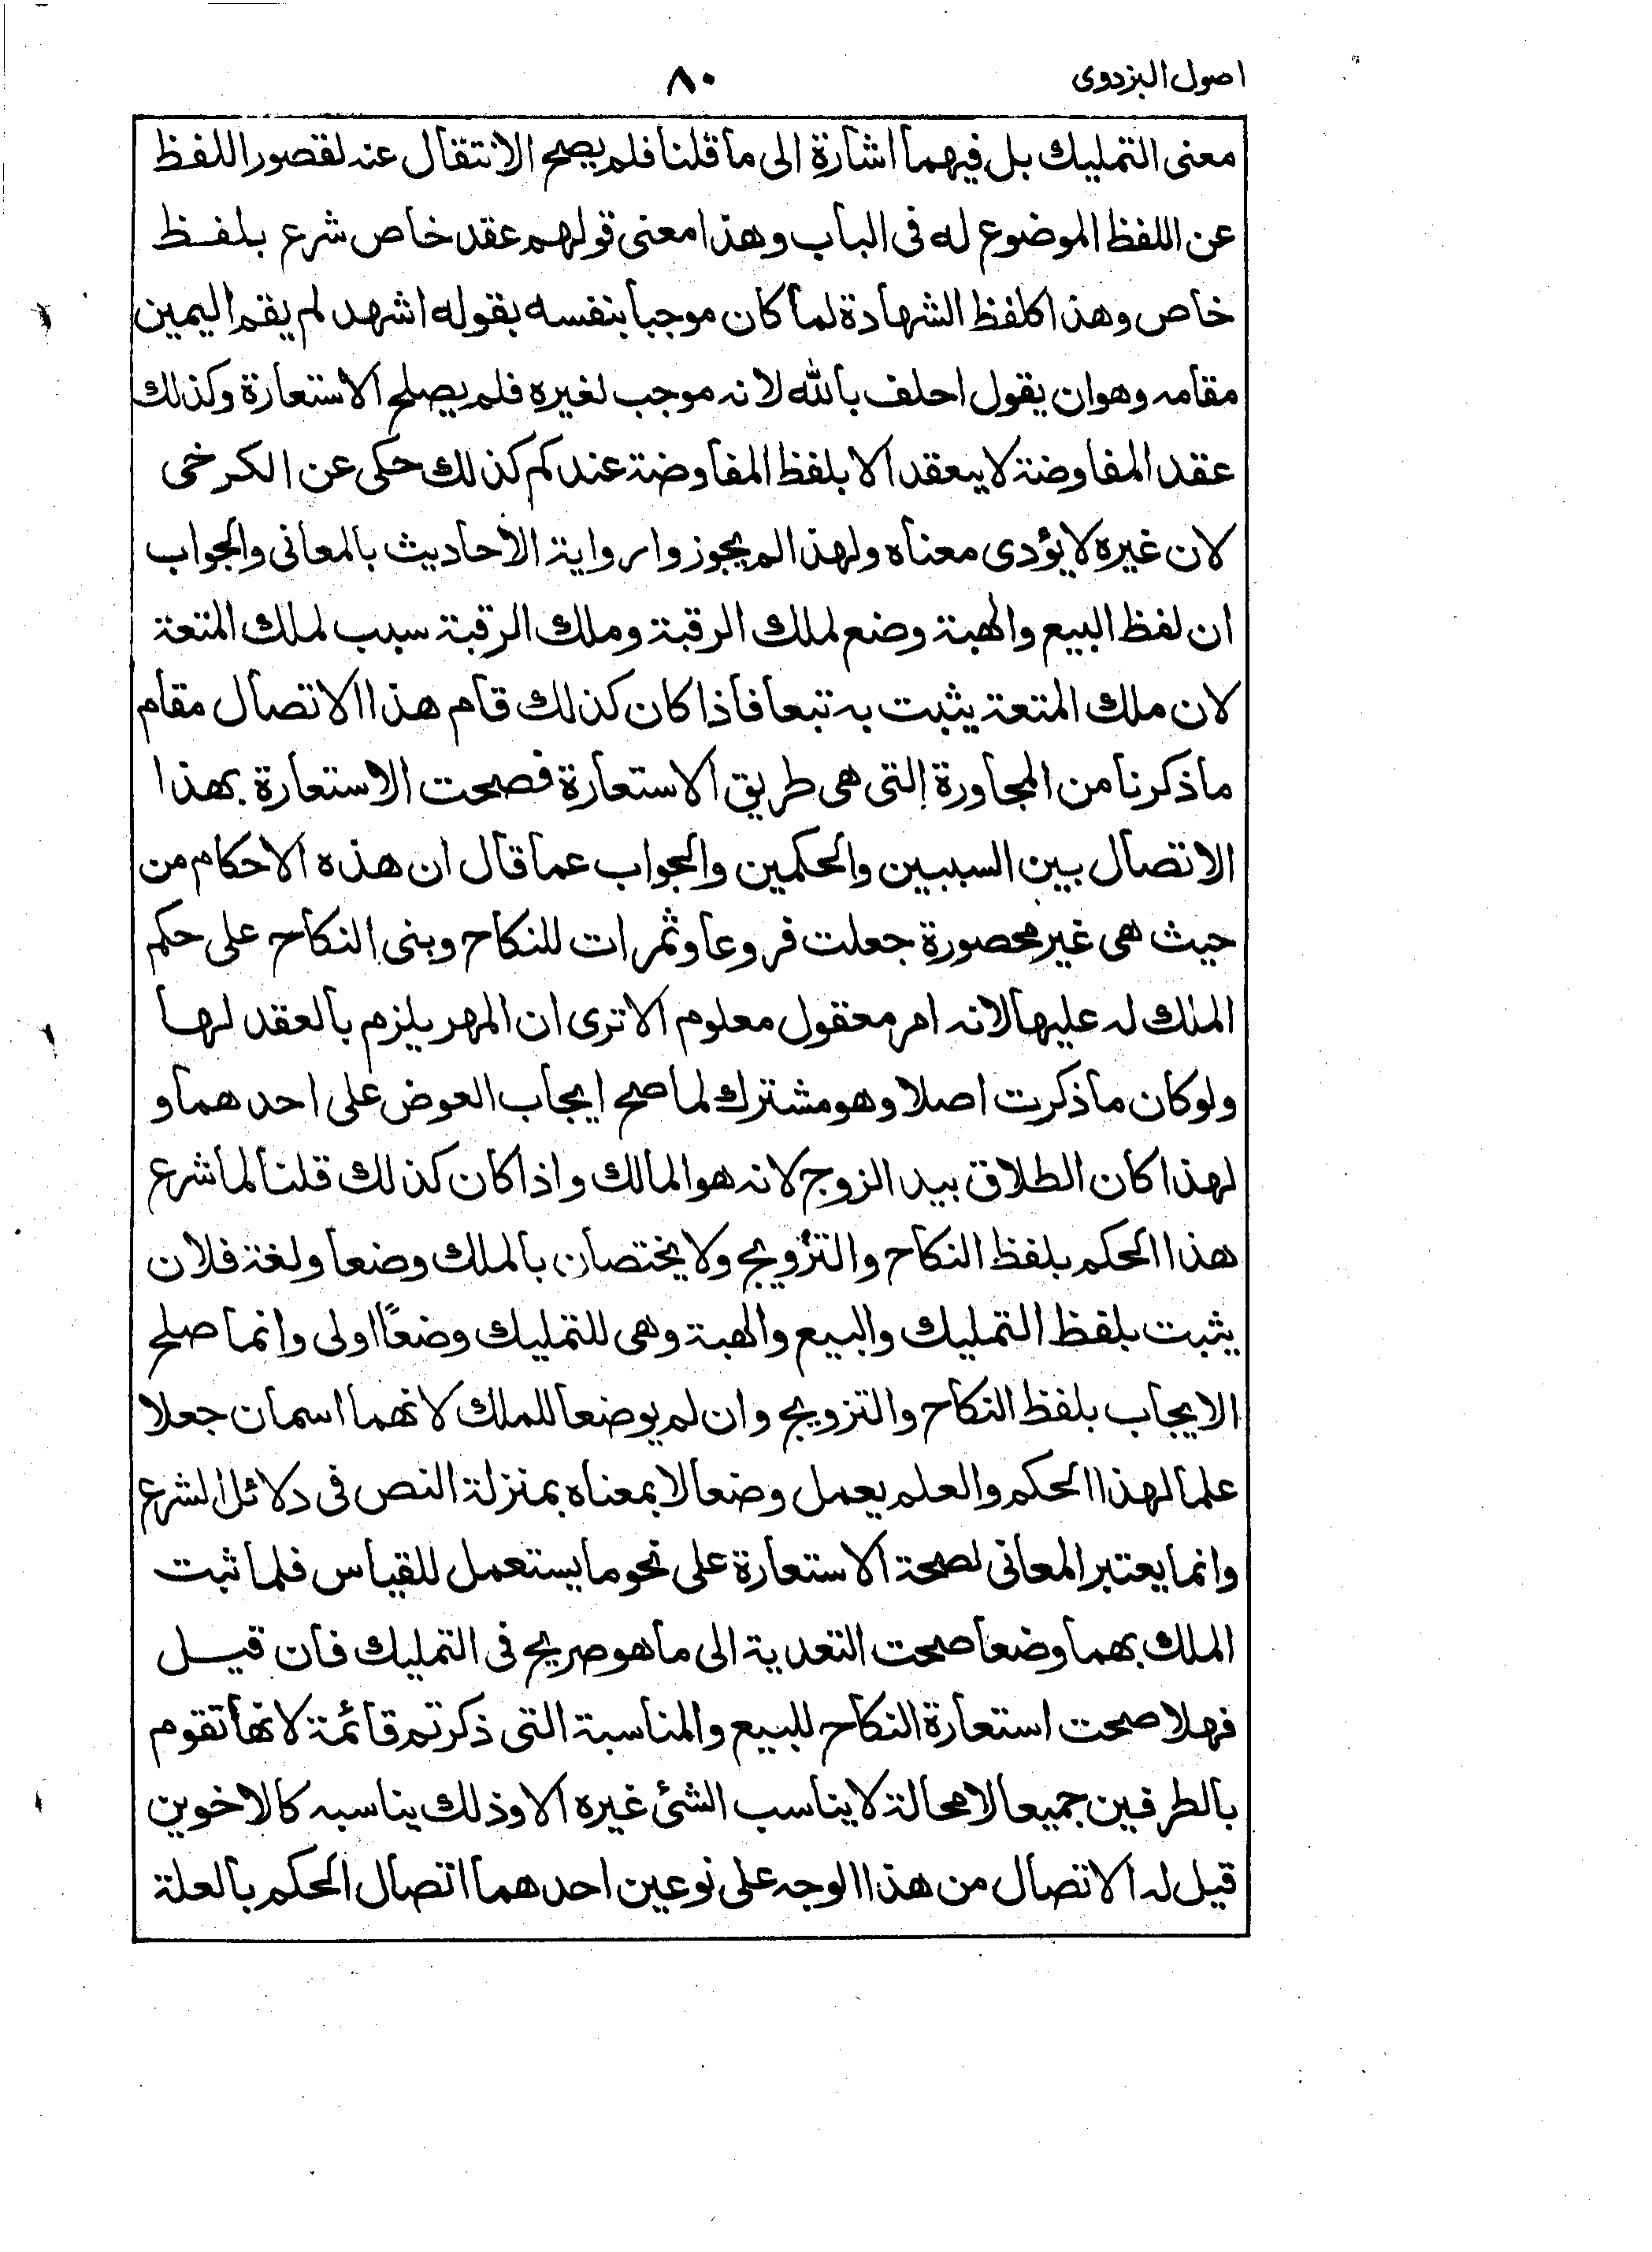 اصول البزدوی
٨٠
معنى التمليك بل فيهما اشارة الى ما قلنا فلم يصح الانتقال عنه لقصور اللفظ
عن اللفظ الموضوع له فى الباب وهذا معنى قولهم عقد خاص شرع بلفظ
خاص وهذا كلفظ الشهادة لما كان موجبا بنفسه بقوله اشهد لم يقم اليمين
مقامه وهو ان يقول احلف بالله لانه موجب لغيره فلم يصلح الاستعارة وكذلك
عقد المفاوضة لا ينعقد الا بلفظ المفاوضة عندكم كذلك حكى عن الكرخى
لان غيره لا يؤدى معناه ولهذا لم يجوزوا رواية الاحاديث بالمعانى والجواب
ان لفظ البيع والهبة وضع لملك الرقبة وملك الرقبة سبب لملك المتعة
لان ملك المتعة يثبت به تبعا فاذا كان كذلك قام هذا الاتصال مقام
ما ذكرنا من المجاورة التى هى طريق الاستعارة فصحت الاستعارة بهذا
الاتصال بين السببين والحكمين والجواب عما قال ان هذه الاحكام من
حيث هى غير محصورة جعلت فروعا وثمرات للنكاح وبنى النكاح على حكم
الملك له عليها لانه امر معقول معلوم الا ترى ان المهر يلزم بالعقد لها
ولو كان ما ذكرت اصلا وهو مشترك لما صح ايجاب العوض على احدهما و
لهذا كان الطلاق بيد الزوج لانه هو المالك واذا كان كذلك قلنا لما شرع
هذا الحكم بلفظ النكاح والتزويج ولا يختصان بالملك وضعا ولغة فلان
يثبت بلفظ التمليك والبيع والهبة وهى للتمليك وضعًا اولى وانما صلح
الايجاب بلفظ النكاح والتزويج وان لم يوضعا للملك لانهما اسمان جعلا
علما لهذا الحكم والعلم يعمل وضعا لا بمعناه بمنزلة النص فى دلائل الشرع
وانما يعتبر المعانى لصحة الاستعارة على نحو ما يستعمل للقياس فلما ثبت
الملك بهما وضعا صحت التعدية الى ما هو صريح فى التمليك فان قيل
فهلا صحت استعارة النكاح للبيع والمناسبة التى ذكرتم قائمة لانها تقوم
بالطرفين جميعا لا محالة لا يناسب الشئ غيره الا وذلك يناسبه كالاخوين
قيل له الاتصال من هذا الوجه على نوعين احدهما اتصال الحكم بالعلة